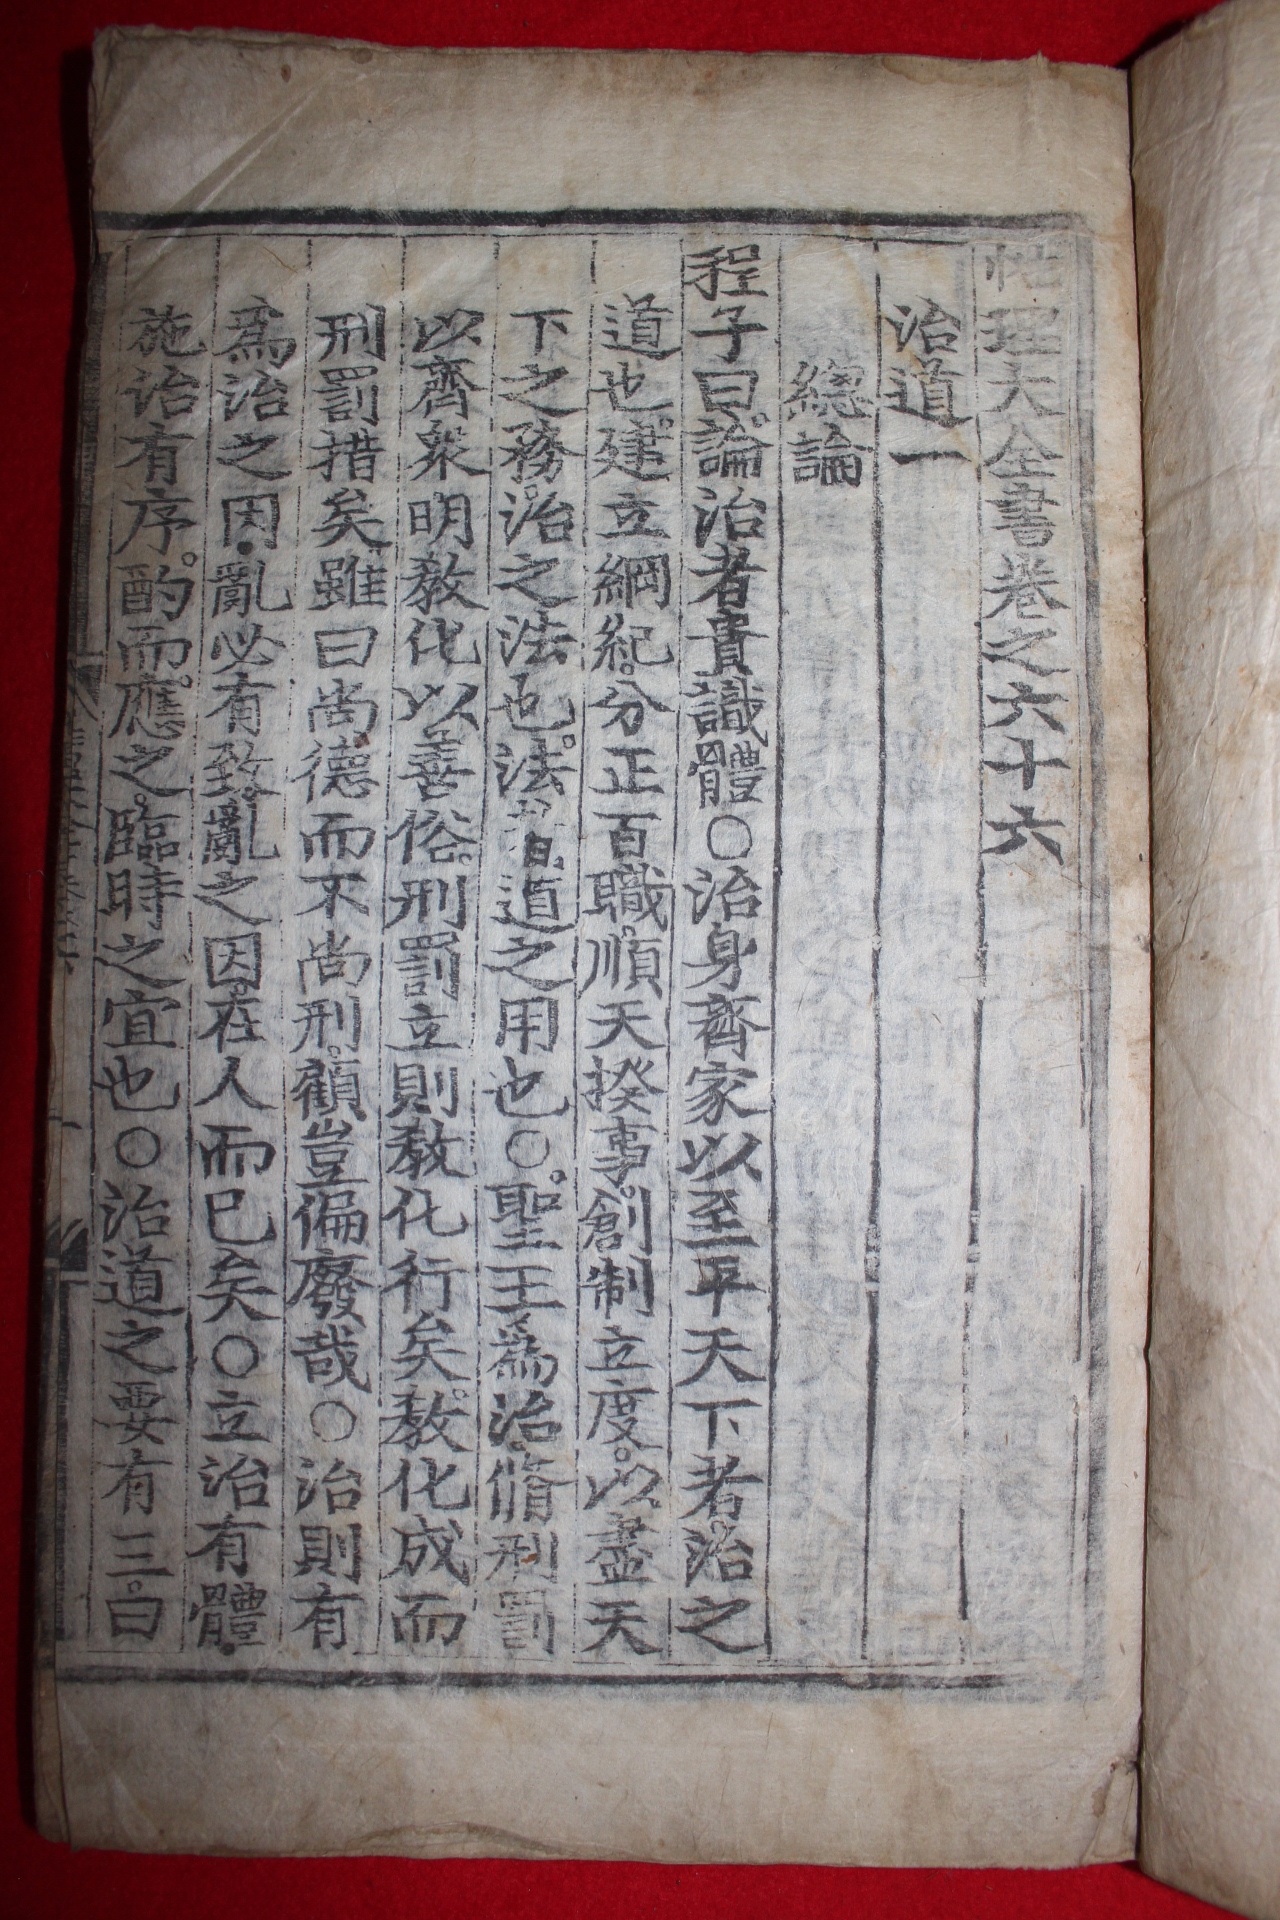 性理大全書卷之六十六
治道一
總論
程子曰論治者貴識體○治身齊家以至平天下者治之
道也建立綱紀分正百職順天揆事創制立度以盡天
下之務治之法也法者道之用也○聖王爲治脩刑罰
以齊衆明敎化以善俗刑罰立則敎化行矣敎化成而
刑罰措矣雖曰尚德而不尚刑顧豈偏廢哉○治則有
爲治之因亂必有致亂之因在人而已矣○立治有體
施治有序酌而應之臨時之宜也○治道之要有三曰